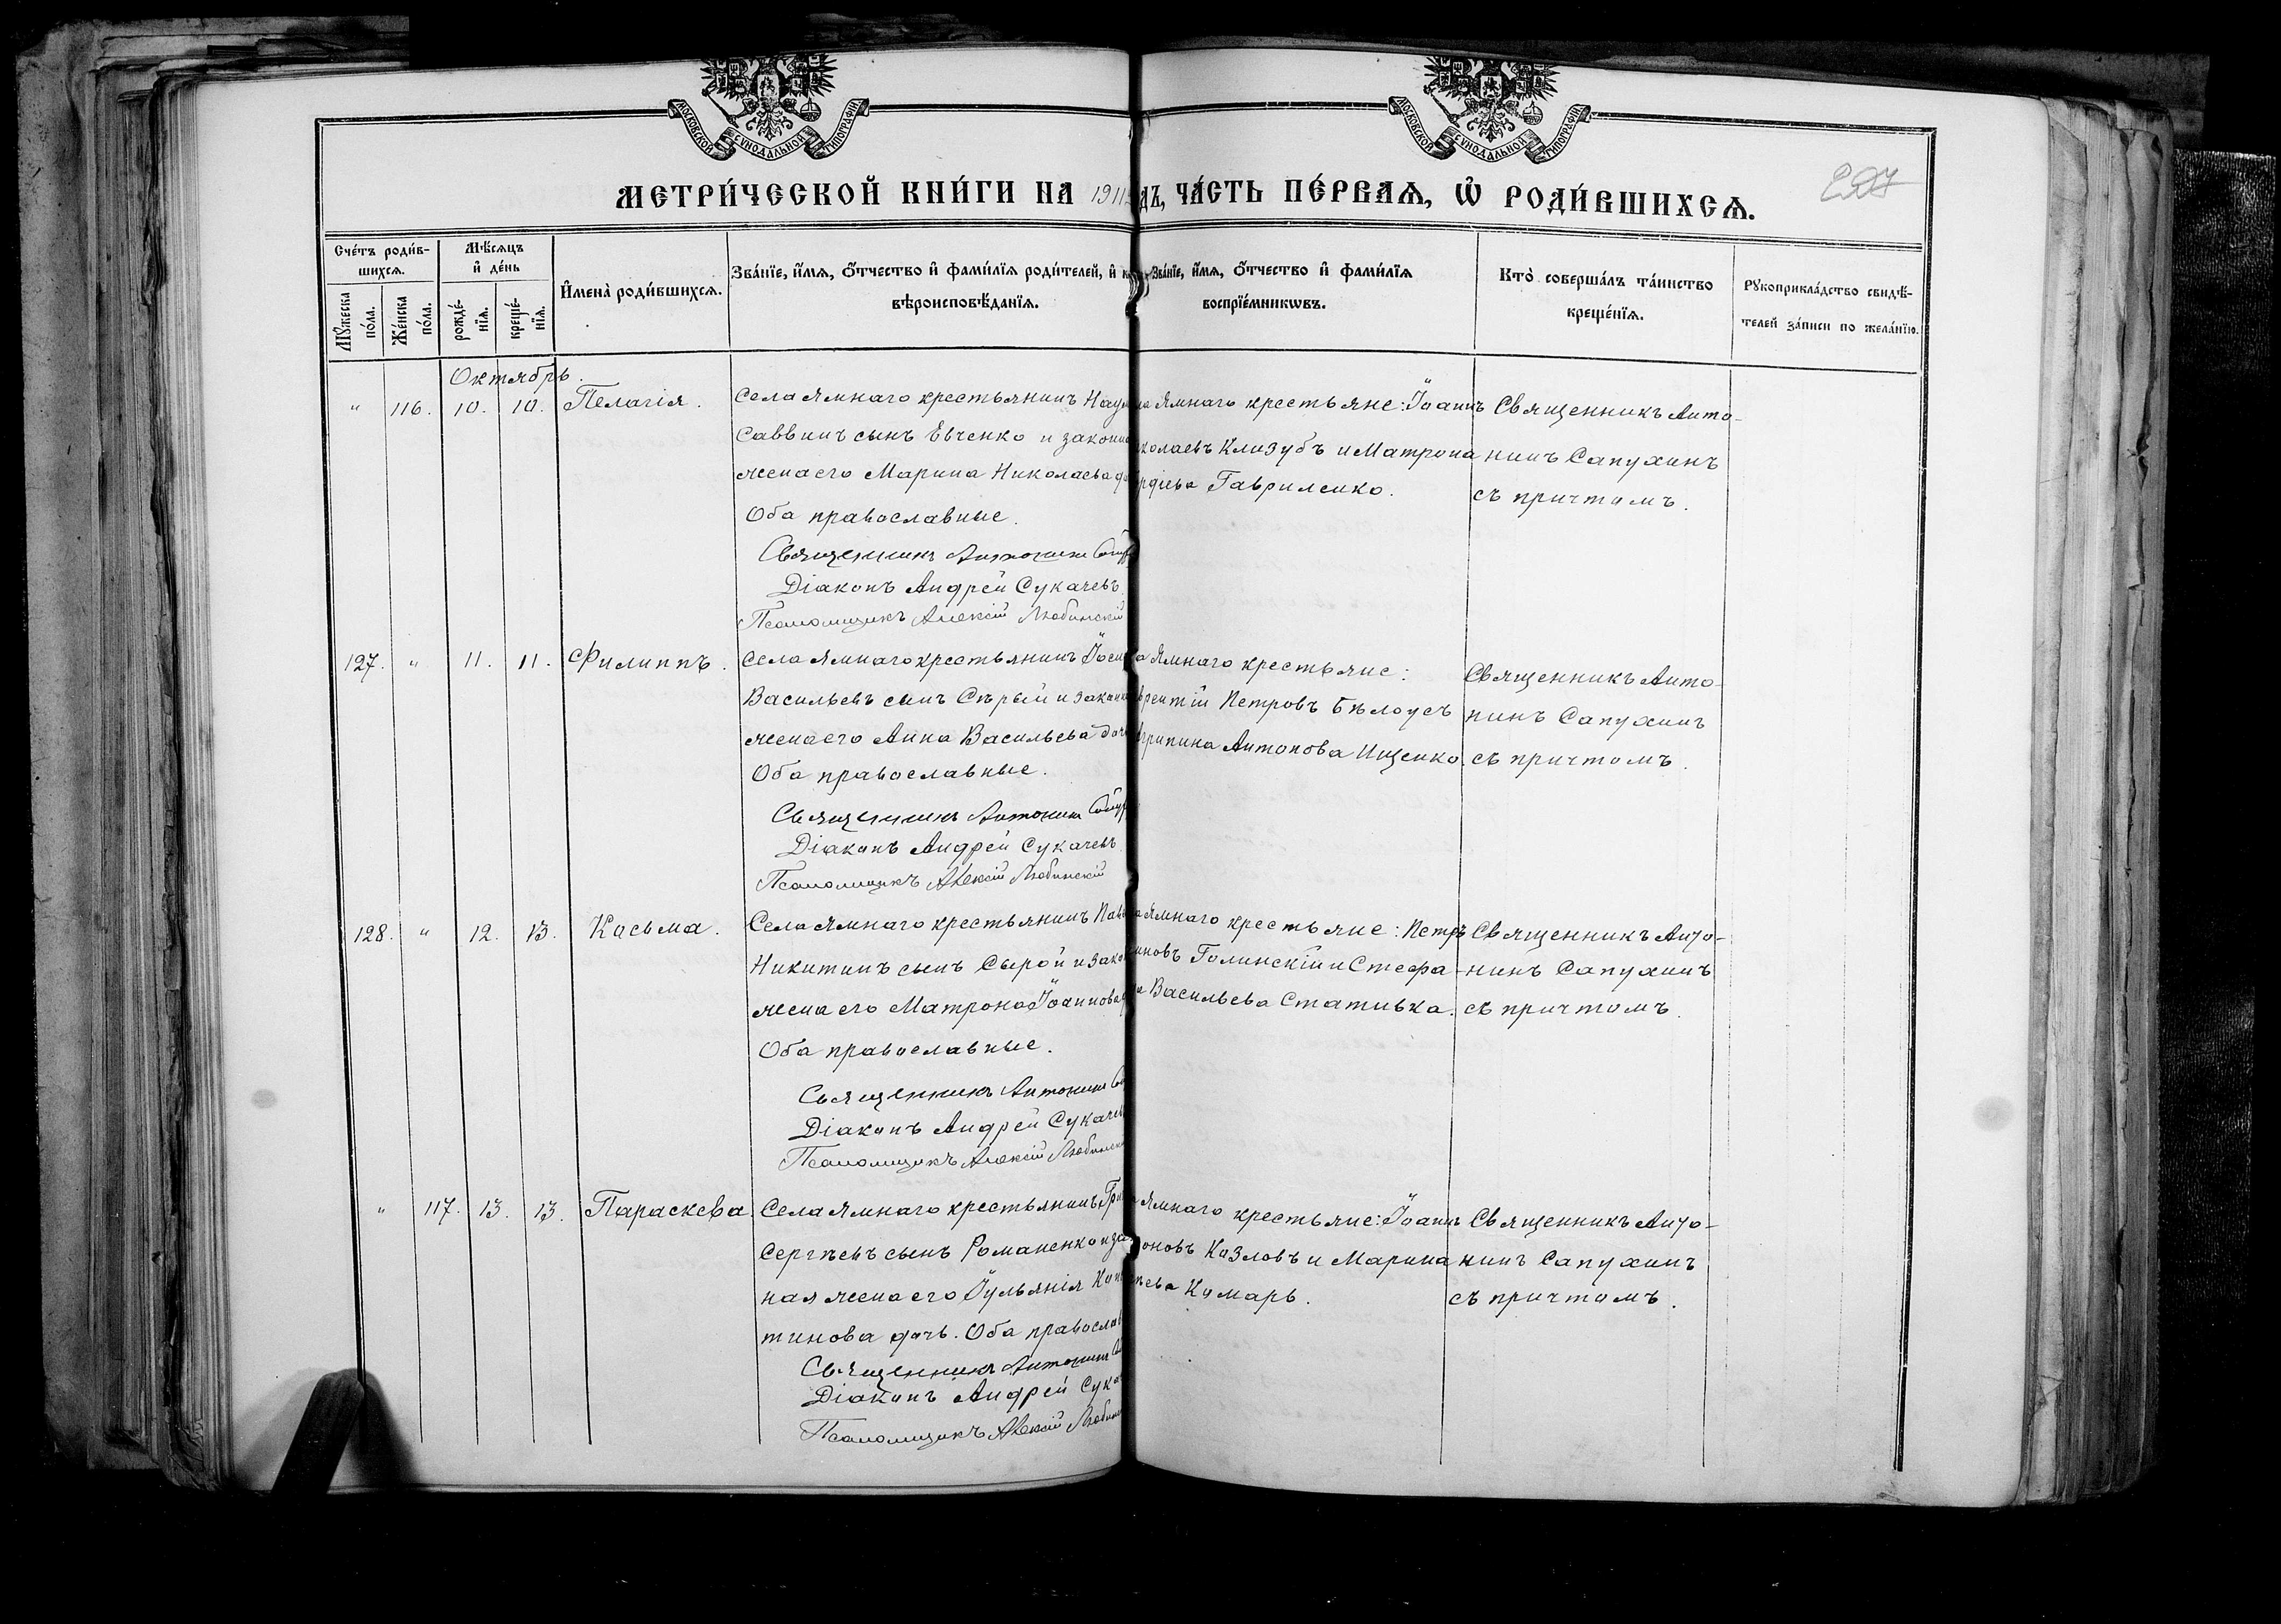 МОСКОВСКОЙ СѴНОДАЛЬНОЙ ТИПОГРАФІИ
МОСКОВСКОЙ СѴНОДАЛЬНОЙ ТИПОГРАФІИ
МЕТРИ́ЧЕСКОЙ КНИ́ГИ НА 1911 ДЪ, ЧА́СТЬ ПЕ́РВАѦ, Ѡ҆ РОДИ́ВШИХСѦ.
Сче́тъ роди́в-
шихсѧ.
Мꙋ́жеска по́ла.
Же́нска по́ла.
Мѣ́сѧцъ
и҆ де́нь
рожде́-
нїѧ.
креще́-
нїѧ.
И҆мена̀ роди́вшихсѧ.
Зва́нїе, и҆́мѧ, ѻ҆́тчество и҆ фами́лїѧ роди́телей, и҆ к
вѣроисповѣ́данїѧ.
Зва́нїе, и҆́мѧ, ѻ҆́тчество и҆ фами́лїѧ
воспрїе́мникѡвъ.
Кто̀ соверша́лъ та́инство
креще́нїѧ.
Рꙋкоприкла́дство свидѣ́-
телей за́писи по жела́нїю.
Октябрь.
" 116. 10. 10. Пелагія.
Села Ямнаго крестьянинъ Наум
Саввинъ сынъ Евченко и законн
жена его Марина Николаева д
Оба православные.
Священникъ Антонинъ Сапу
Діаконъ Андрей Сукачевъ
Псаломщикъ Алексій Любинскій
а Ямнаго крестьяне: Іоаннъ
колаевъ Клизубъ и Матрона
рдіева Гавриленко.
Священникъ Анто-
нинъ Сапухинъ
съ причтомъ.
127. " 11. 11. Филиппъ.
Села Ямнаго крестьянинъ Іоси
Васильевъ сынъ Сѣрый и законн
жена его Анна Васильева доч
Оба православные.
Священникъ Антонинъ Сапу
Діаконъ Андрей Сукачевъ
Псаломщикъ Алексій Любинскій
а Ямнаго крестьяне:
врентій Петровъ Бѣлоусъ
грипина Антонова Ищенко.
Священникъ Анто-
нинъ Сапухинъ
съ причтомъ.
128. " 12. 13. Косьма.
Села Ямнаго крестьянинъ Пав
Никитинъ сынъ Сырой и зако
жена его Матрона Іоаннова д
Оба православные.
Священникъ Антонинъ Са
Діаконъ Андрей Сукачев
Псаломщикъ Алексій Любинск
а Ямнаго крестьяне: Петръ
иновъ Голинскій и Стефа-
а Васильева Стативка.
Священникъ Анто-
нинъ Сапухинъ
съ причтомъ.
" 117. 13. 13. Параскева.
Села Ямнаго крестьянинъ Гри
Сергѣевъ сынъ Романенко и за
ная жена его Іульянія Кон
тинова дочь. Оба православ
Священникъ Антонинъ Са
Діаконъ Андрей Сука
Псаломщикъ Алексій Любин
а Ямнаго крестьяне: Іоаннъ
оновъ Козловъ и Марина
ѣева Комарь.
Священникъ Анто-
нинъ Сапухинъ
съ причтомъ.